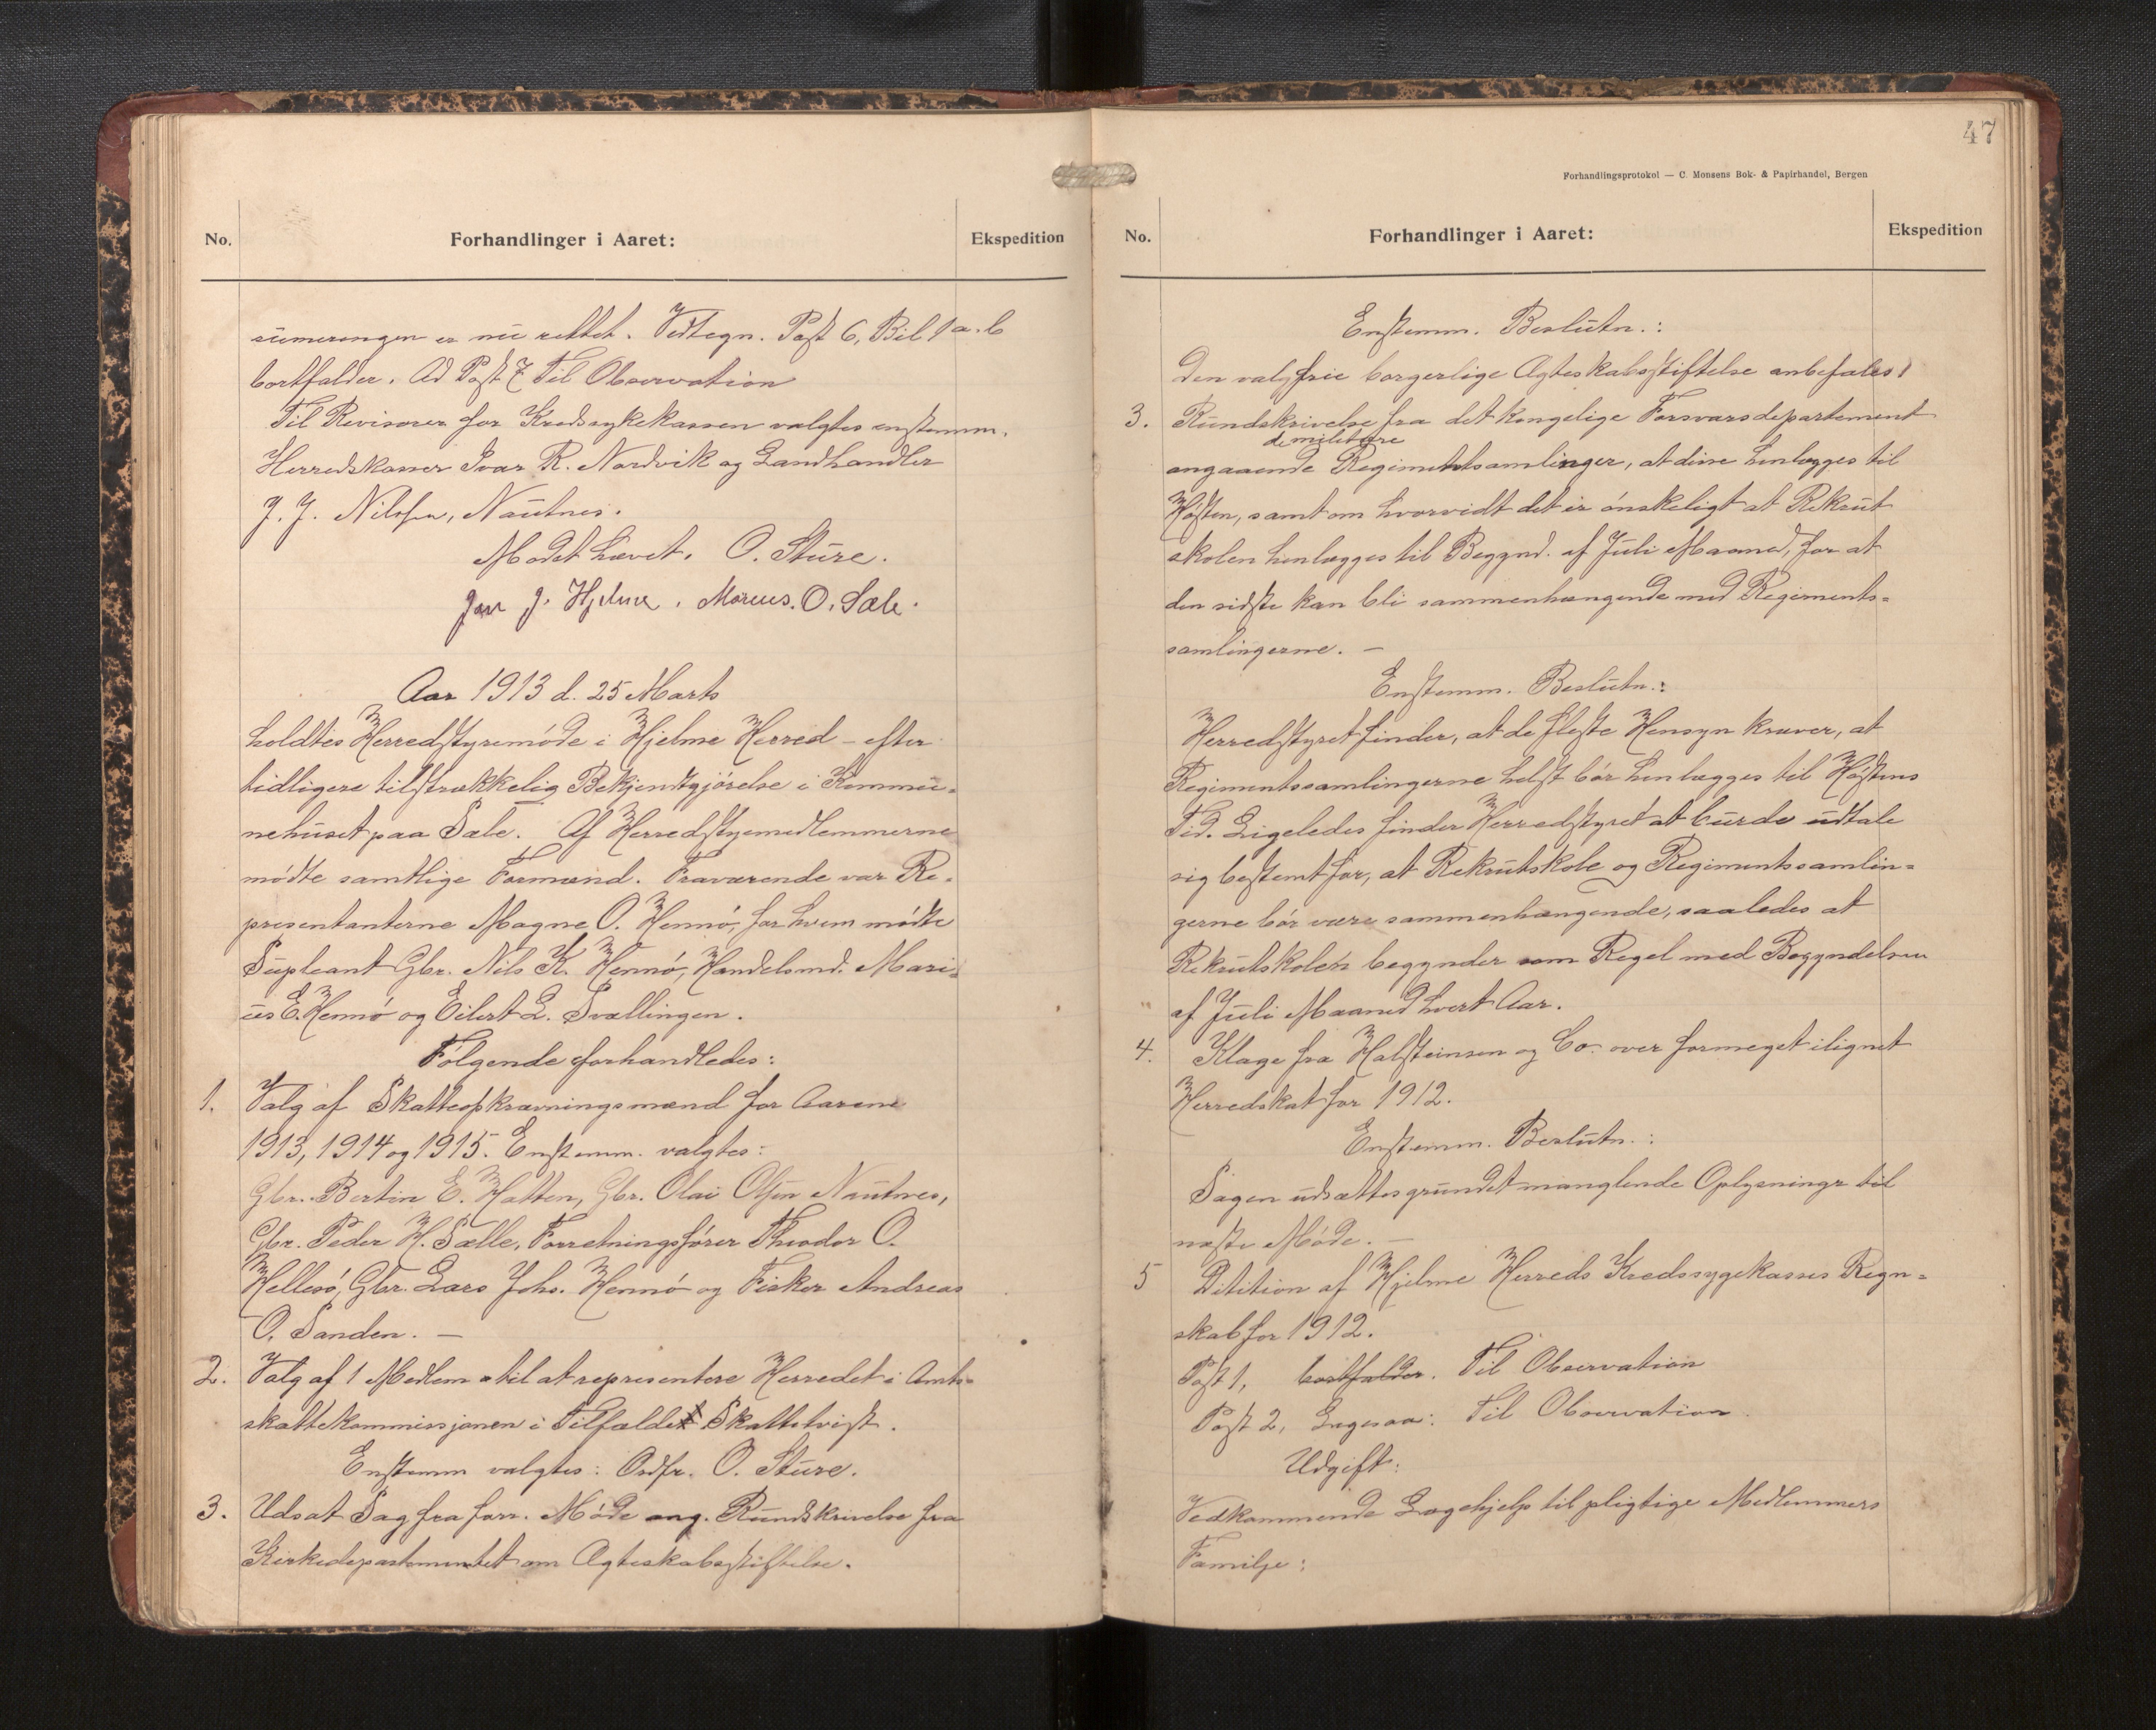 No.
Forhandlinger i Aaret:
Ekspedition
sumeringen er nu rettet. Vedtegn. Post 6, Bil 1 a.b
bortfalder. Ad Post 7 Til Observation
Til Revisorer for Kredssykekassen valgtes enstemm.
Herredskasser Ivar R. Nordvik og Landhandler
J. J. Nilssen, Nautnes.
Mødet hævet. O. Sture.
J. Hjelme. Marcus. O. Sæle.
Aar 1913 d. 25 Marts
holdtes Herredstyremøde i Hjelme Herred – efter
tidligere tilstrækkelig Bekjendtgjørelse i Kommu-
nehuset paa Sæle. Af Herredstyremedlemmerne
mødte samtlige Formænd. Fraværende var Re-
presentanterne Magne O. Hennø, for hvem mødte
Supleant Gbr. Nils K. Hennø, Handelsmd. Mari-
us E. Hennø og Eilert L. Svellingen.
Følgende forhandledes:
1. Valg af Skatteopkrævningsmænd for Aarene
1913, 1914 og 1915. Enstemm. valgtes:
Gbr. Bertin E. Hatten, Gbr. Olai Olsen Nautnes,
Gbr. Peder H. Sælle, Forretningsfører Theodor O.
Hellesø, Gbr. Lars Johs. Hennø og Fisker Andreas
O. Sanden. –
2. Valg af 1 Medlem til at representere Herredet i Amts-
skattekommissjonen i Tilfælde Skattetvist.
Enstemm valgtes: Ordfr. O. Sture.
3. Udsat Sag fra forr. Møde ang. Rundskrivelse fra
Kirkedepartementet om Ægteskabsstiftelse.
47
Forhandlingsprotokol — C. Monsens Bok- & Papirhandel, Bergen
No.
Forhandlinger i Aaret:
Ekspedition
Enstemm. Beslutn.:
Den valgfrie borgerlige Ægteskabsstiftelse anbefales!
3. Rundskrivelse fra det kongelige Forsvarsdepartement
de militære
angaaende Regimentsamlinger, at disse henlægges til
Høsten, samt om hvorvidt det er ønskeligt at Rekrut
skolen henlægges til Begynd. af Juli Maaned, for at
den sidste kan bli sammenhængende med Regiments-
samlingerne. –
Enstemm. Beslutn.:
Herredstyret finder, at de fleste Hensyn kræver, at
Regimentssamlingerne helst bør henlægges til Høstens
Tid. Ligeledes finder Herredstyret at burde udtale
sig bestemt for, at Rekrutskole og Regimentssamlin-
gerne bør være sammenhængende, saaledes at
Rekrutskolen begynder som Regel med Begyndelsen
af Juli Maaned hvert Aar.
4. Klage fra Halsteinsen og Co. over formeget ilignet
Herredskat for 1912.
Enstemm. Beslutn.:
Sagen udsættes grundet manglende Oplysninger til
næste Møde. –
5 Ditition af Hjelme Herreds Kredssygekasses Regn-
skab for 1912.
Post 1, bortfalder. Til Observation
Post 2, Ligesaa: Til Observation
Udgift:
Vedkommende Lægehjelp til pligtige Medlemmers
Familje: